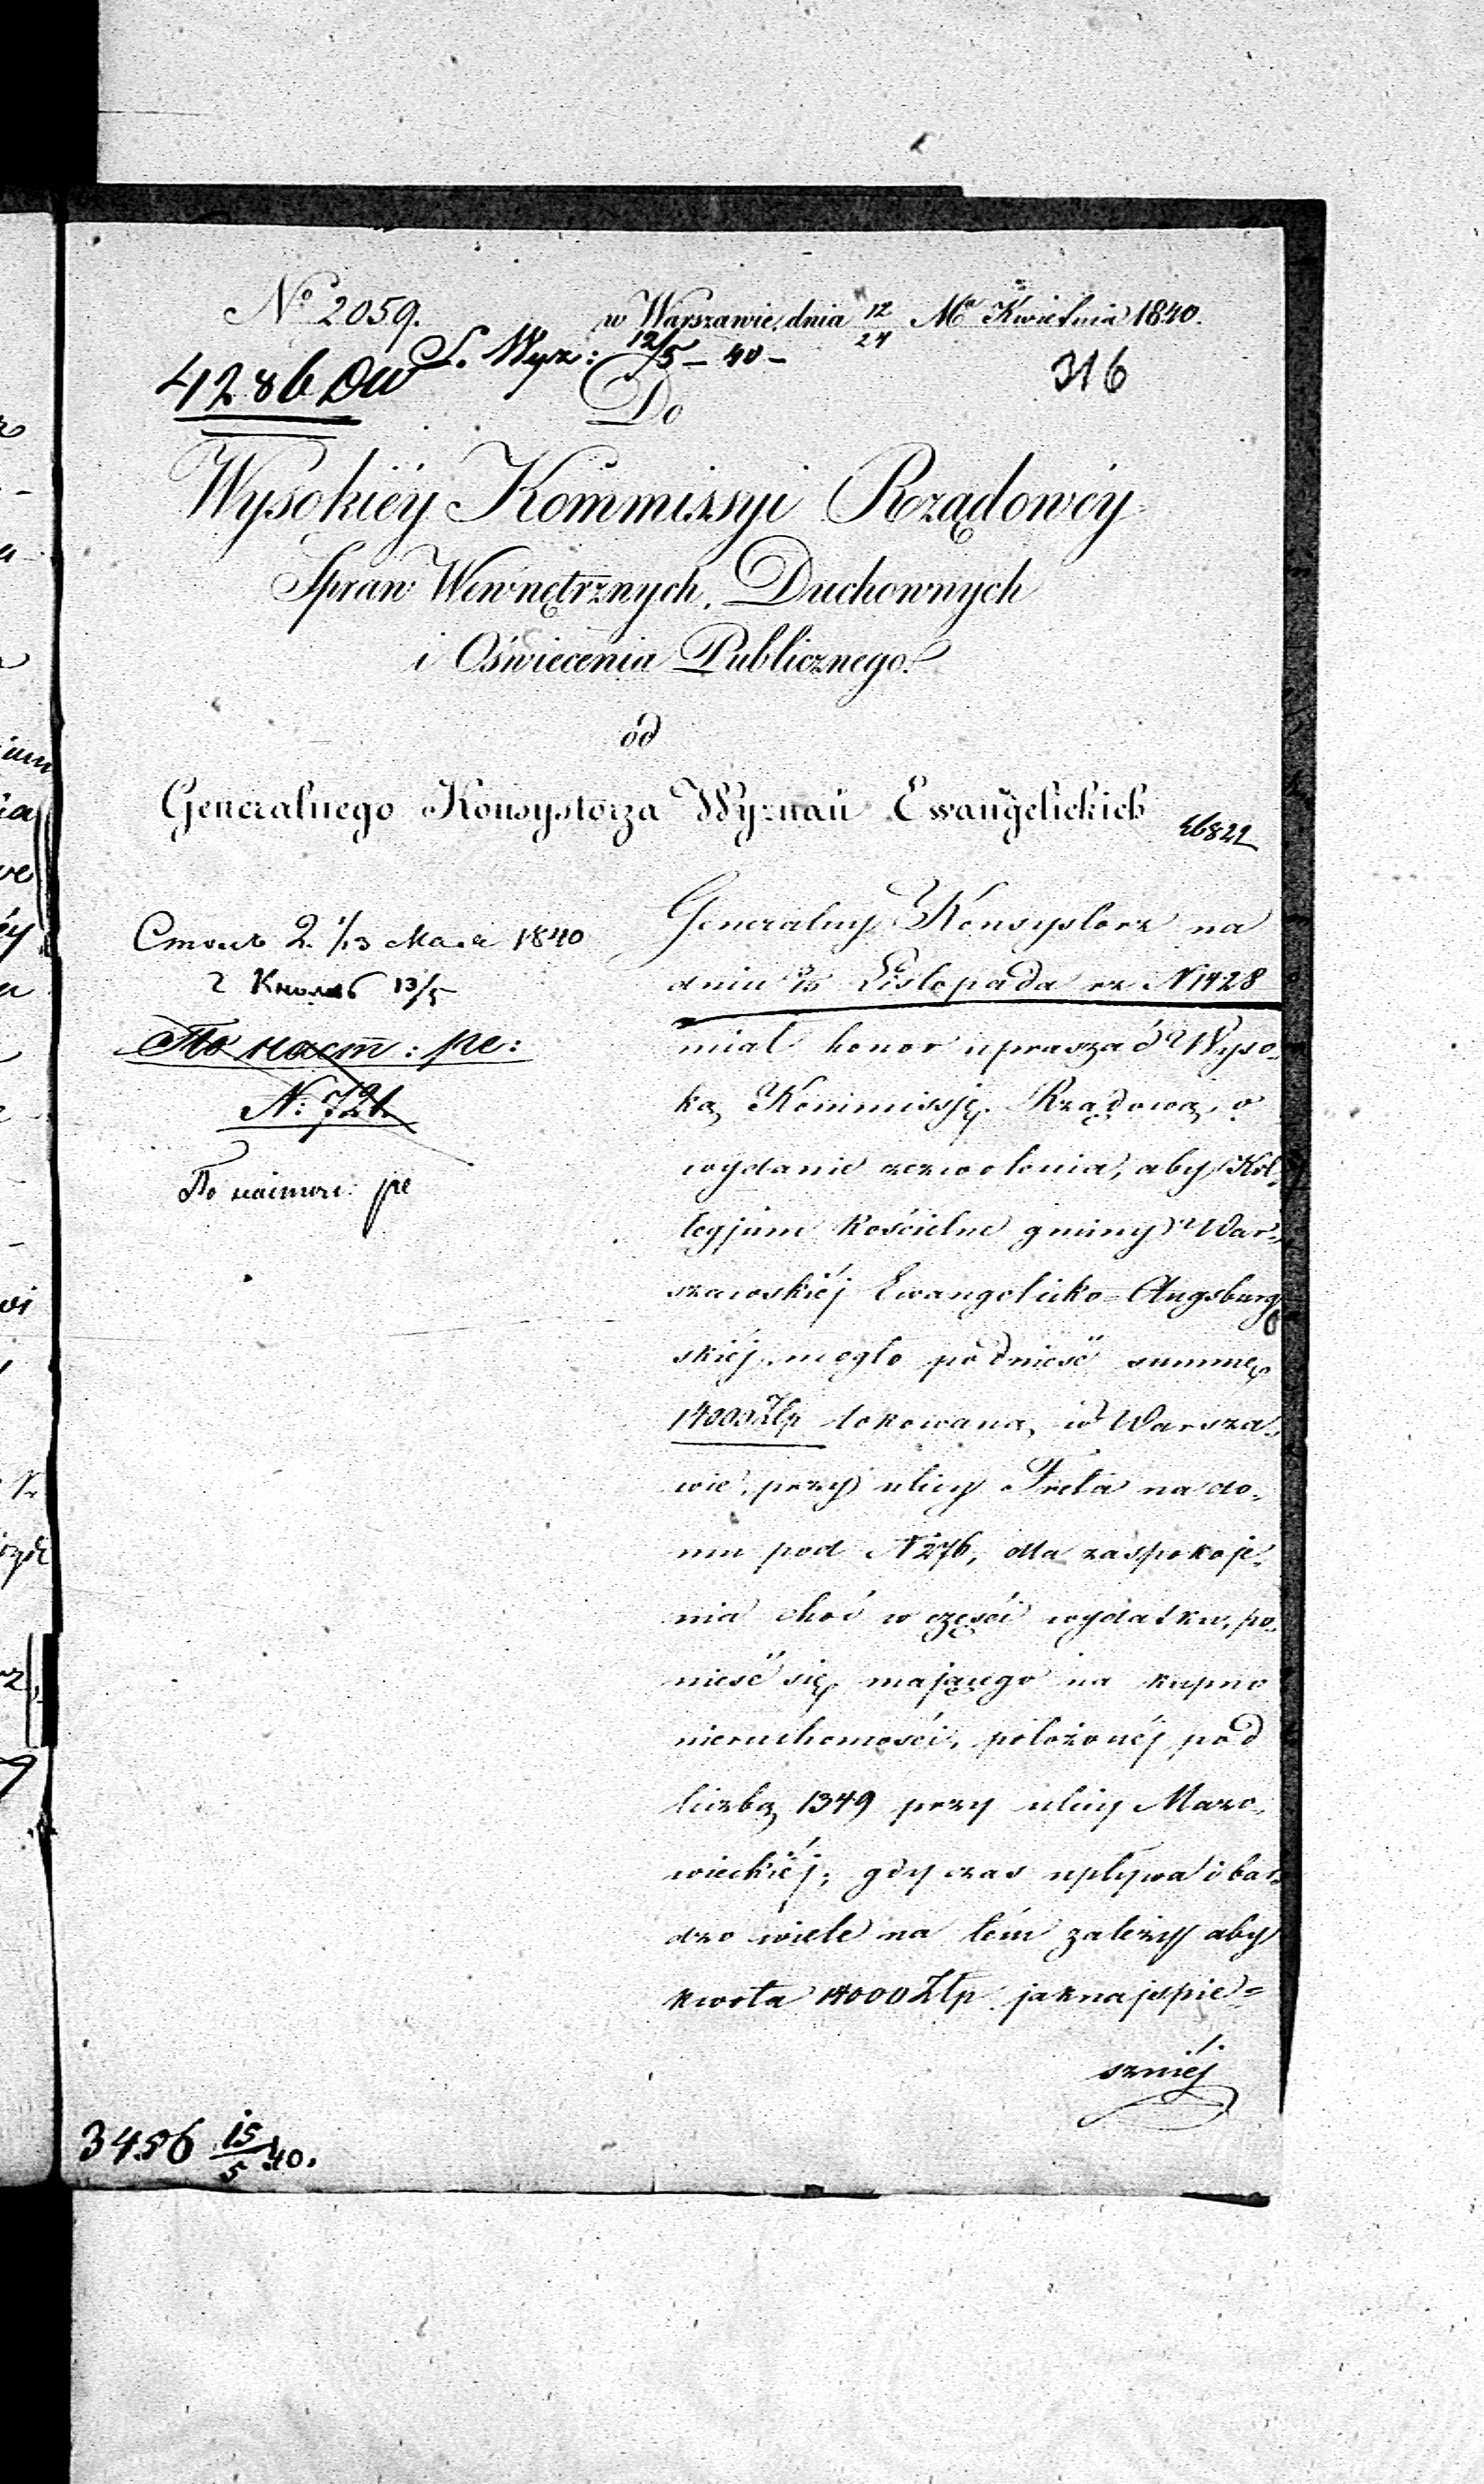 № 2059.
w Warszawie, dnia 12/24 Mca Kwietnia 1840.
S. Wyz: 12/5 – 40 –
4286 DW
316
Do
Wysokiéy Kommissyi Rządowéy
Spraw Wewnętrznych, Duchownych
i Oświecenia Publicznego.
od
Generalnego Konsystorza Wyznań Ewangelickich
2. 1/13 1840
13/5
По наст: ре:
N: 721.
ре
Generalny Konsystorz na
dniu 3/15 Listopada rz N 1428
miał honor upraszać Wyso-
ką Kommissję Rządową, o
wydanie zezwolenia, aby Kol-
legjum Kościelne gminy War-
szawskiéj Ewangelicko-Augsburg
skiéj, mogło podnieść summę
14000 Złp lokowaną, w Warsza-
wie, przy ulicy Freta na do-
mu pod N 276, dla zaspokoje-
nia choć w części wydatku, po-
nieść się mającego na kupno
nieruchomości, położonéj pod
liczbą 1349 przy ulicy Mazo-
wieckiéj; gdy czas upływa i bar-
dzo wiele na tém zależy aby
kwota 14000 Złp jaknajspie=
szniéj
3456 15/5 40.